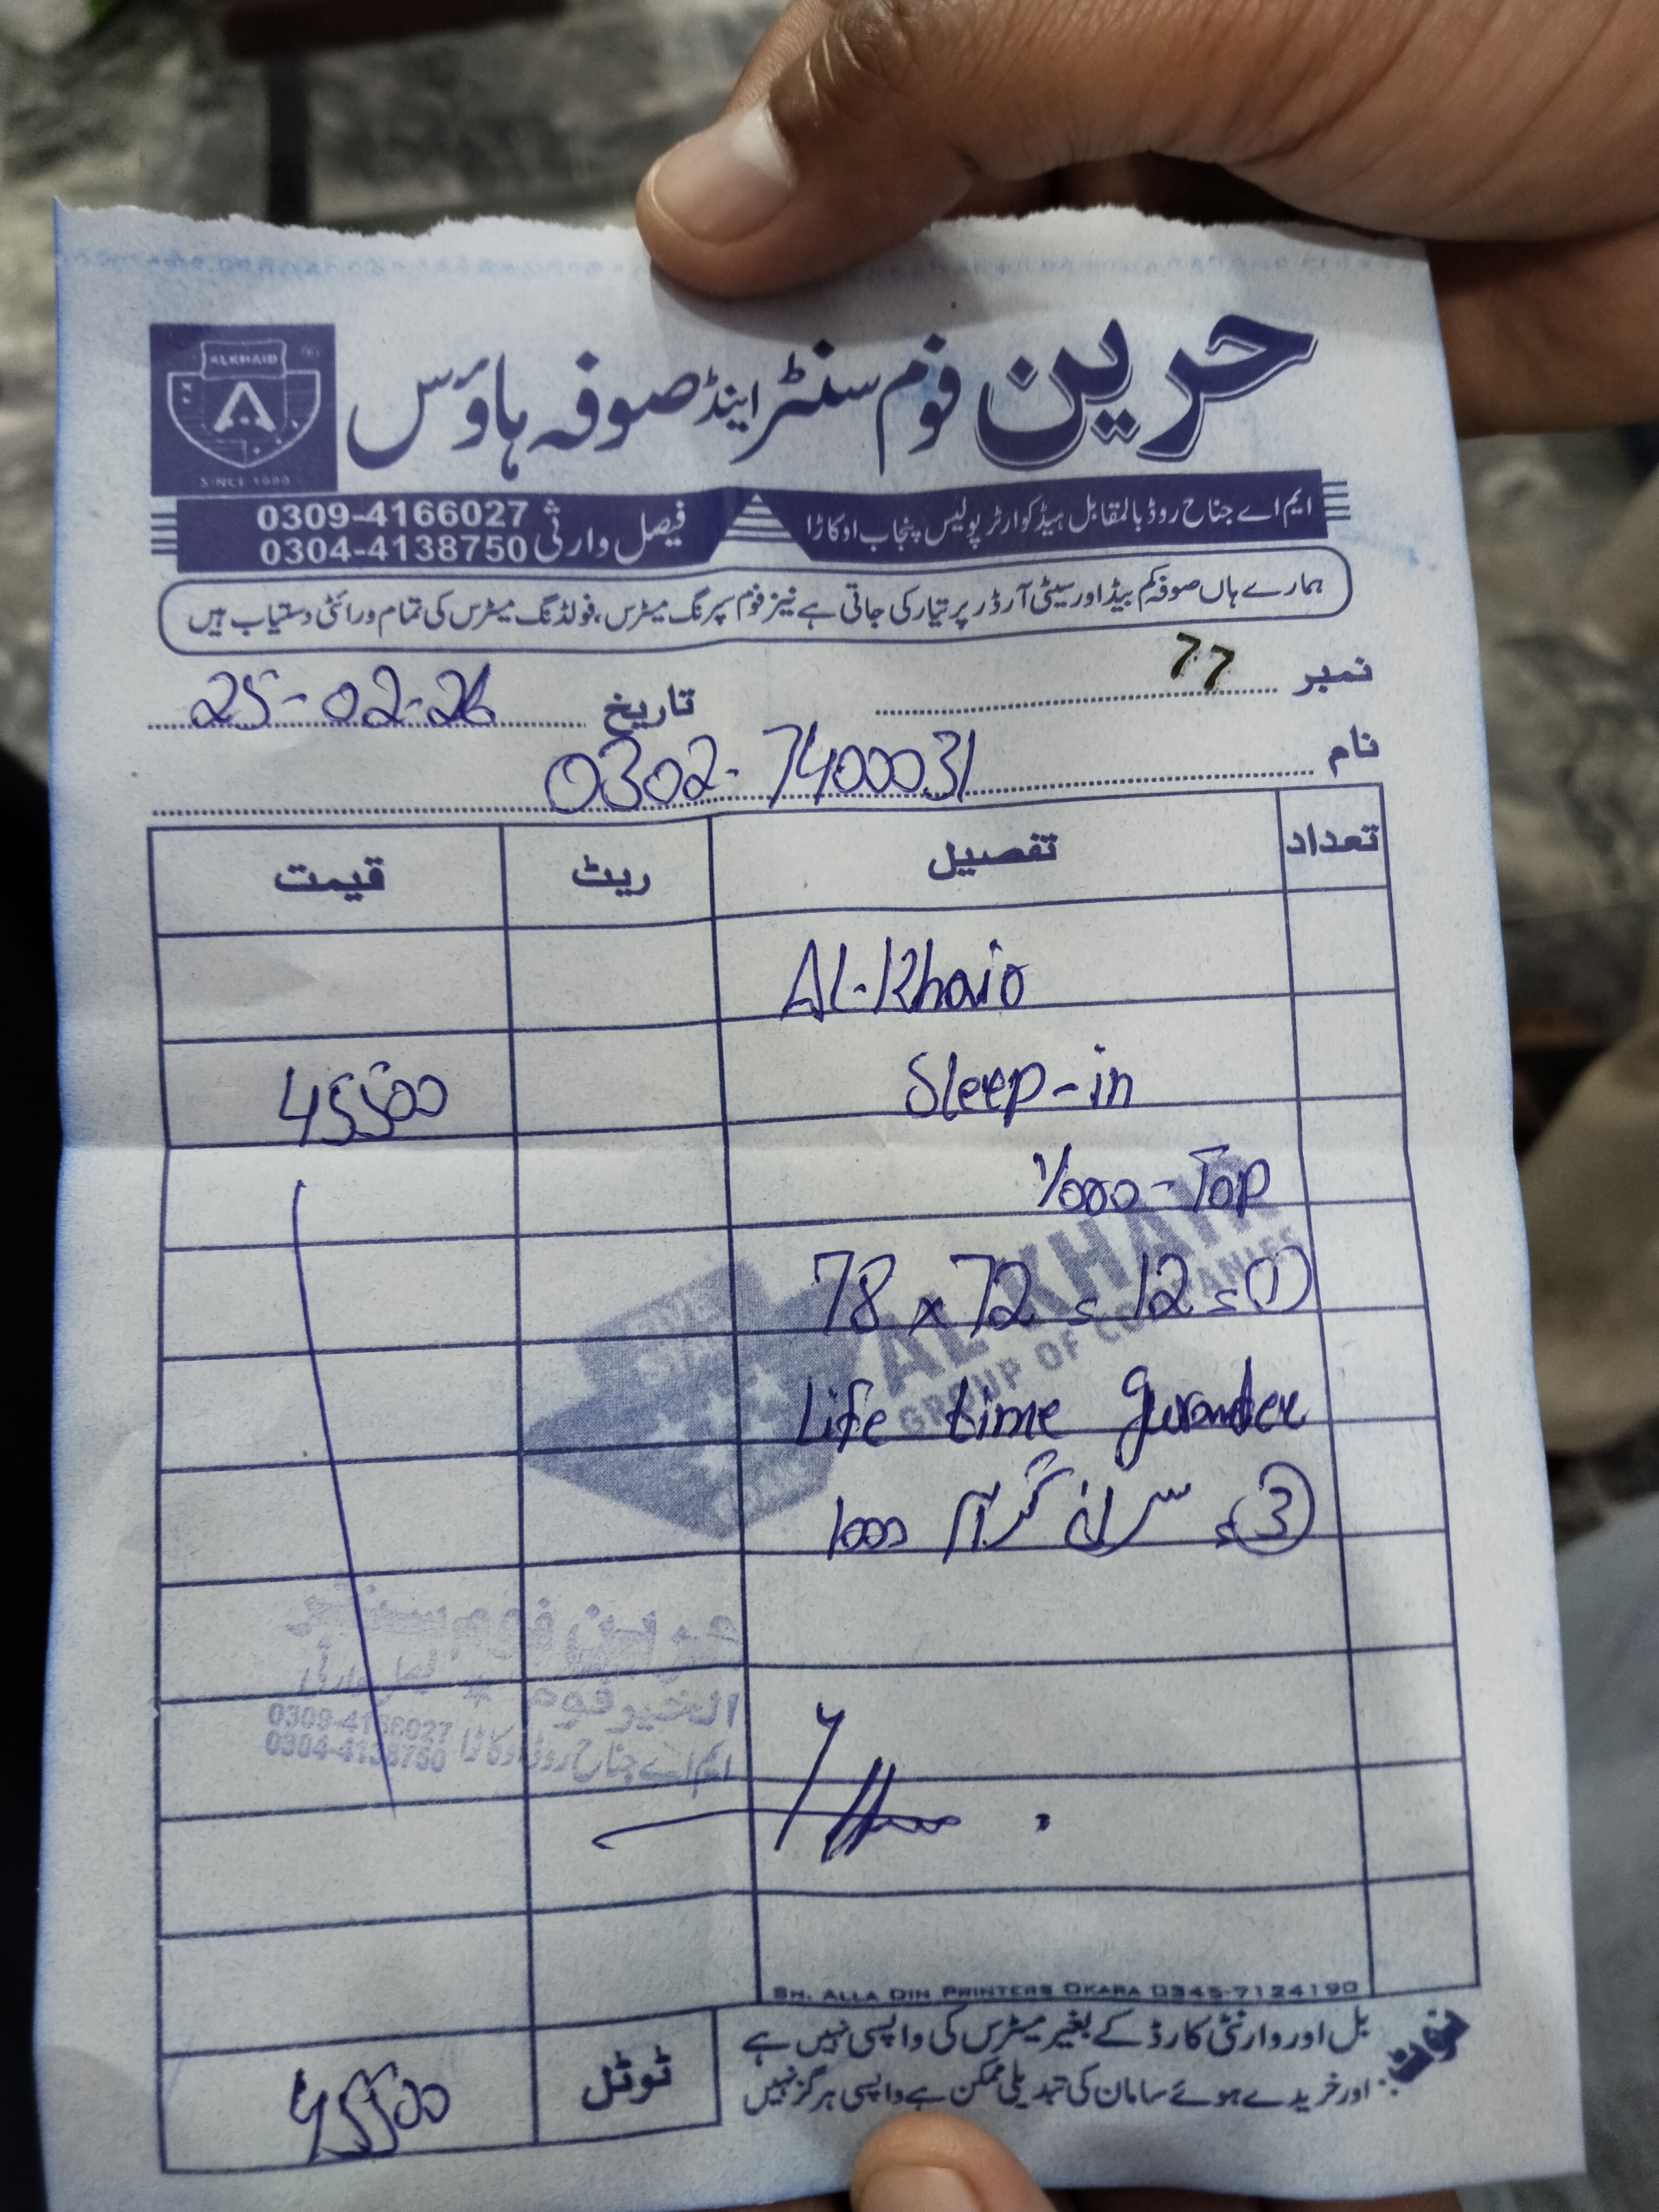 حرین فوم سنٹر اینڈ صوفہ ہاؤس
ALKHAIR
A
SINCE 1990
ایم اے جناح روڈ بالمقابل ہیڈ کوارٹر پولیس پنجاب اوکاڑا
فیصل وارثی 0309-4166027
0304-4138750
ہمارے ہاں صوفہ کم بیڈ اور سیٹی آرڈر پر تیار کی جاتی ہے نیز فوم سپرنگ میٹرس، فولڈنگ میٹرس کی تمام ورائٹی دستیاب ہیں
نمبر 77
تاریخ 25-02-26
نام 0302-7400031
تعداد تفصیل ریٹ قیمت
AL-Khair
Sleep-in 45500
1/000-Top
78 x 72 = 12 = 1
Life time gurantee
3 = سرانہ گرام 1000
FIVE STAR
FOAM
AL-KHAIR
GROUP OF COMPANIES
الخیر فوم فیصل وارثی
ایم اے جناح روڈ اوکاڑا 0309-4166027
0304-4138750
SH. ALLA DIN PRINTERS OKARA 0345-7124190
نوٹ: بل اور وارنٹی کارڈ کے بغیر میٹرس کی واپسی نہیں ہے
اور خریدے ہوئے سامان کی تبدیلی ممکن ہے واپسی ہرگز نہیں
ٹوٹل 45500